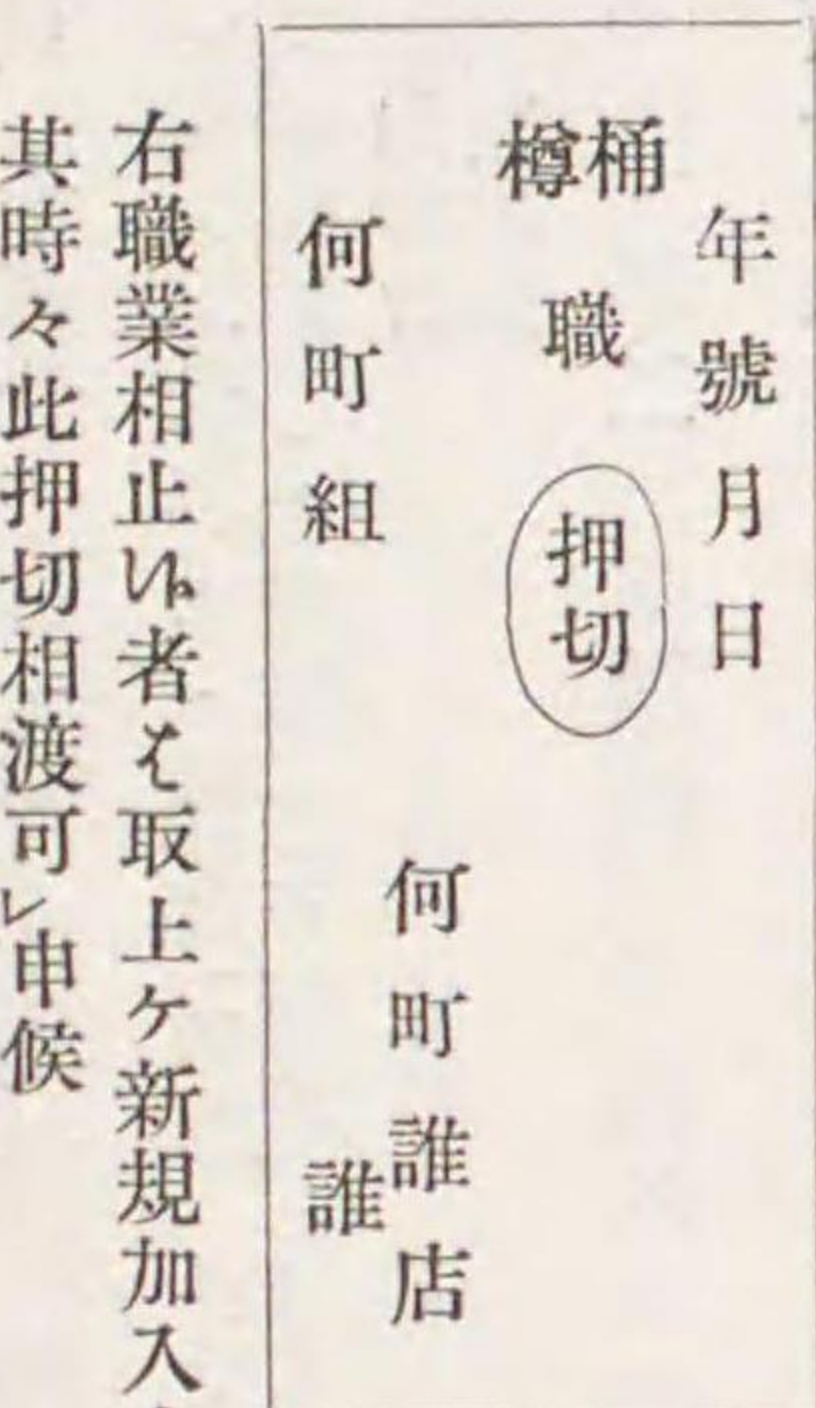 年號月日
桶樽職 押切
何町誰店
何町組 誰
右職業相止候者は取上ケ新規加入
其時々此押切相渡可レ申候